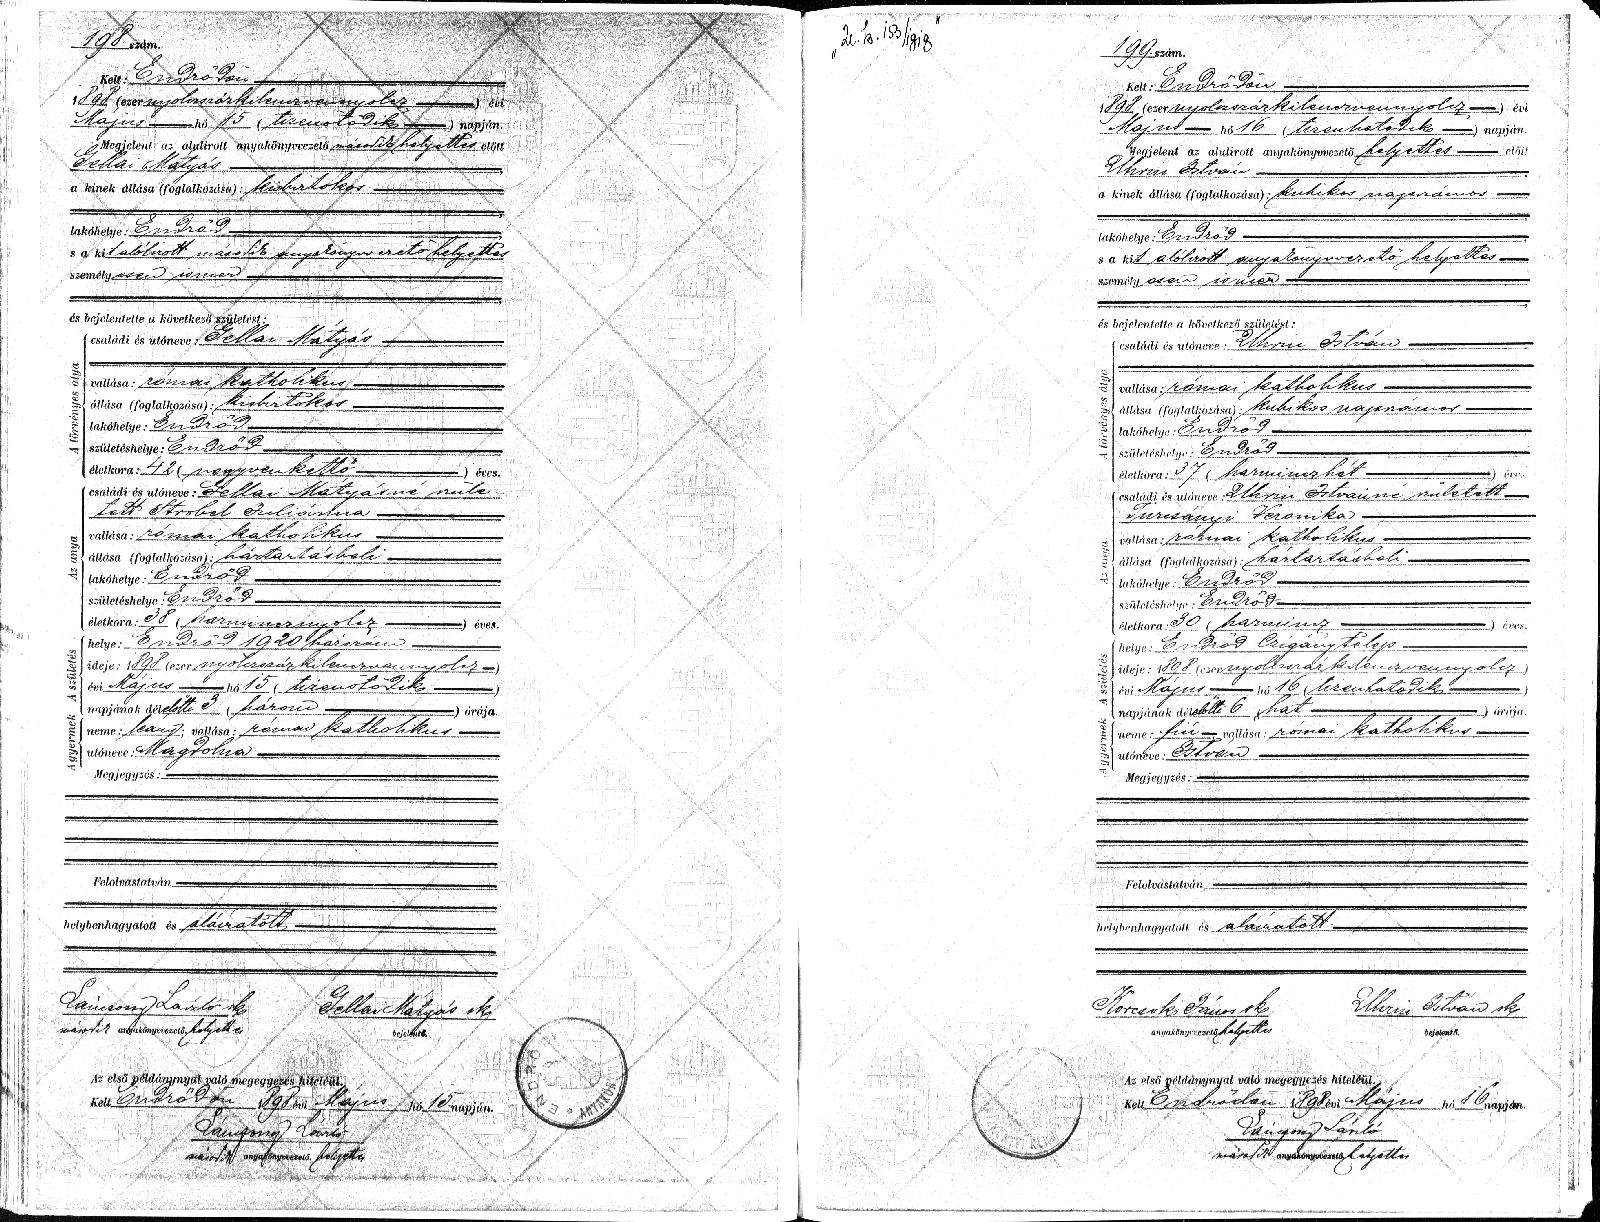 198 szám.
Kelt: Endrődön
1898 (ezer nyolczszázkilenczvennyolcz) évi
Május hó 15 (tizenötödik) napján.
Megjelent az alulirott anyakönyvvezető második helyettes előtt
Gellai Mátyás
a kinek állása (foglalkozása): kisbirtokos
lakóhelye: Endrőd
s a kit alólirott második anyakönyvvezető helyettes
személyesen ismer
és bejelentette a következő születést:
A törvényes atya
családi és utóneve: Gellai Mátyás
vallása: római katholikus
állása (foglalkozása): kisbirtokos
lakóhelye: Endrőd
születéshelye: Endrőd
életkora: 42 (negyvenkettő) éves.
Az anya
családi és utóneve: Gellai Mátyásné szüle-
tett Strobel Juliánna
vallása: római katholikus
állása (foglalkozása): háztartásbeli
lakóhelye: Endrőd
születéshelye: Endrőd
életkora: 38 (harmincznyolcz) éves.
A születés
helye: Endrőd 1920 házszám
ideje: 1898 (ezer nyolczszázkilenczvennyolcz)
évi Május hó 15 (tizenötödik)
napjának délelőtti 3 (három) órája.
A gyermek
neme: leány; vallása: római katholikus
utóneve: Magdolna
Megjegyzés:
Felolvastatván
helybenhagyatott és aláiratott
László sk Gellai Mátyás sk
második anyakönyvvezető helyettes bejelentő.
Az első példánynyal való megegyezés hiteléül.
Kelt Endrődön 1898 évi Május hó 15 napján.
László
második anyakönyvvezető helyettes
ENDRŐD
199 szám.
Kelt: Endrődön
1898 (ezer nyolczszázkilenczvennyolcz) évi
Május hó 16 (tizenhatodik) napján.
Megjelent az alulirott anyakönyvvezető helyettes előtt
Uhrin István
a kinek állása (foglalkozása): kubikos napszámos
lakóhelye: Endrőd
s a kit alólirott anyakönyvvezető helyettes
személyesen ismer
és bejelentette a következő születést:
A törvényes atya
családi és utóneve: Uhrin István
vallása: római katholikus
állása (foglalkozása): kubikos napszámos
lakóhelye: Endrőd
születéshelye: Endrőd
életkora: 37 (harminczhét) éves
Az anya
családi és utóneve Uhrin Istvánné született
Turcsányi Veronika
vallása: római katholikus
állása (foglalkozása): háztartásbeli
lakóhelye: Endrőd
születéshelye: Endrőd
életkora: 30 (harmincz) éves.
A születés
helye: Endrőd Czigánytelep
ideje: 1898 (ezer nyolczszázkilenczvennyolcz)
évi Május hó 16 (tizenhatodik)
napjának délelőtti 6 (hat) órája.
A gyermek
neme: fiú vallása: római katholikus
utóneve: István
Megjegyzés:
Felolvastatván
helybenhagyatott és aláiratott
Korcsok János sk Uhrin István sk
anyakönyvvezető helyettes bejelentő.
Az első példánynyal való megegyezés hiteléül.
Kelt Endrődön 1898 évi Május hó 16 napján.
László
második anyakönyvvezető helyettes